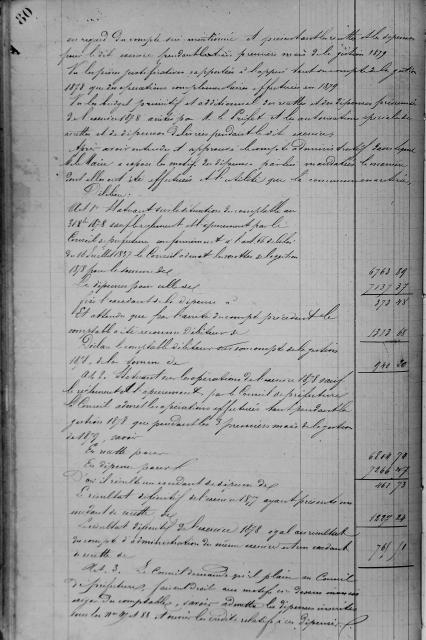 80
au regard du compte sus mentionné et présentant les recettes et les dépenses
pour le dit exercice pendant les trois premiers mois de la gestion 1879
Vu les pièces justificatives rapportées à l'appui tant du compte de la gestion
1878 que des opérations complémentaires effectuées en 1879
Vu les budgets primitif et additionnel des recettes et des dépenses présumées
de l'exercice 1878 arrêtés par M. le Préfet et les autorisations spéciales de
recettes et de dépenses délivrées pendant le dit exercice
Après avoir entendu et approuvé le compte d'administratif
le Maire a exposé les motifs des dépenses par lui mandatées la manière
dont elles ont été effectuées et l'utilité que la commune en a retirée,
Délibère:
Art. 1er Statuant sur la situation du comptable au
31 Xbre 1878 sauf le règlement et apurement par le
Conseil de préfecture conformément à l'art. 66 de la loi
du 18 juillet 1837 le Conseil admet les recettes de la gestion
1878 pour la somme de 6763 89
Les dépenses pour celle de 7137 37
fixe l'excédant de la dépense à 373 48
Et attendu que par l'arrêté du compte précédent le
comptable a été reconnu débiteur de 1313 68
Déclare le comptable débiteur sur son compte de la gestion
1878, de la somme de 940 20
Art. 2. Statuant sur les opérations de l'exercice 1878 sauf
le règlement et l'apurement par le Conseil de préfecture
le Conseil admet les opérations effectuées tant pendant la
gestion 1878 que pendant les 3 premiers mois de la gestion
de 1879, savoir
En recette pour 6804 74
En dépense pour 7266 47
D'où il résulte un excédant de dépense de 461 73
Le résultat définitif de l'exercice 1877 ayant présenté un
excédant de recette de 1227 24
Le résultat définitif de l'exercice 1878 égal au résultat
du compte d'administration du même exercice est un excédant
de recette de 765 51
Art. 3. Le Conseil demande qu'il plaise au Conseil
de préfecture, faisant droit aux motifs ci dessus
du comptable, savoir admettre les dépenses inscrites
sous les Nos et 88 et ouvrir les crédits relatifs à ces dépenses.